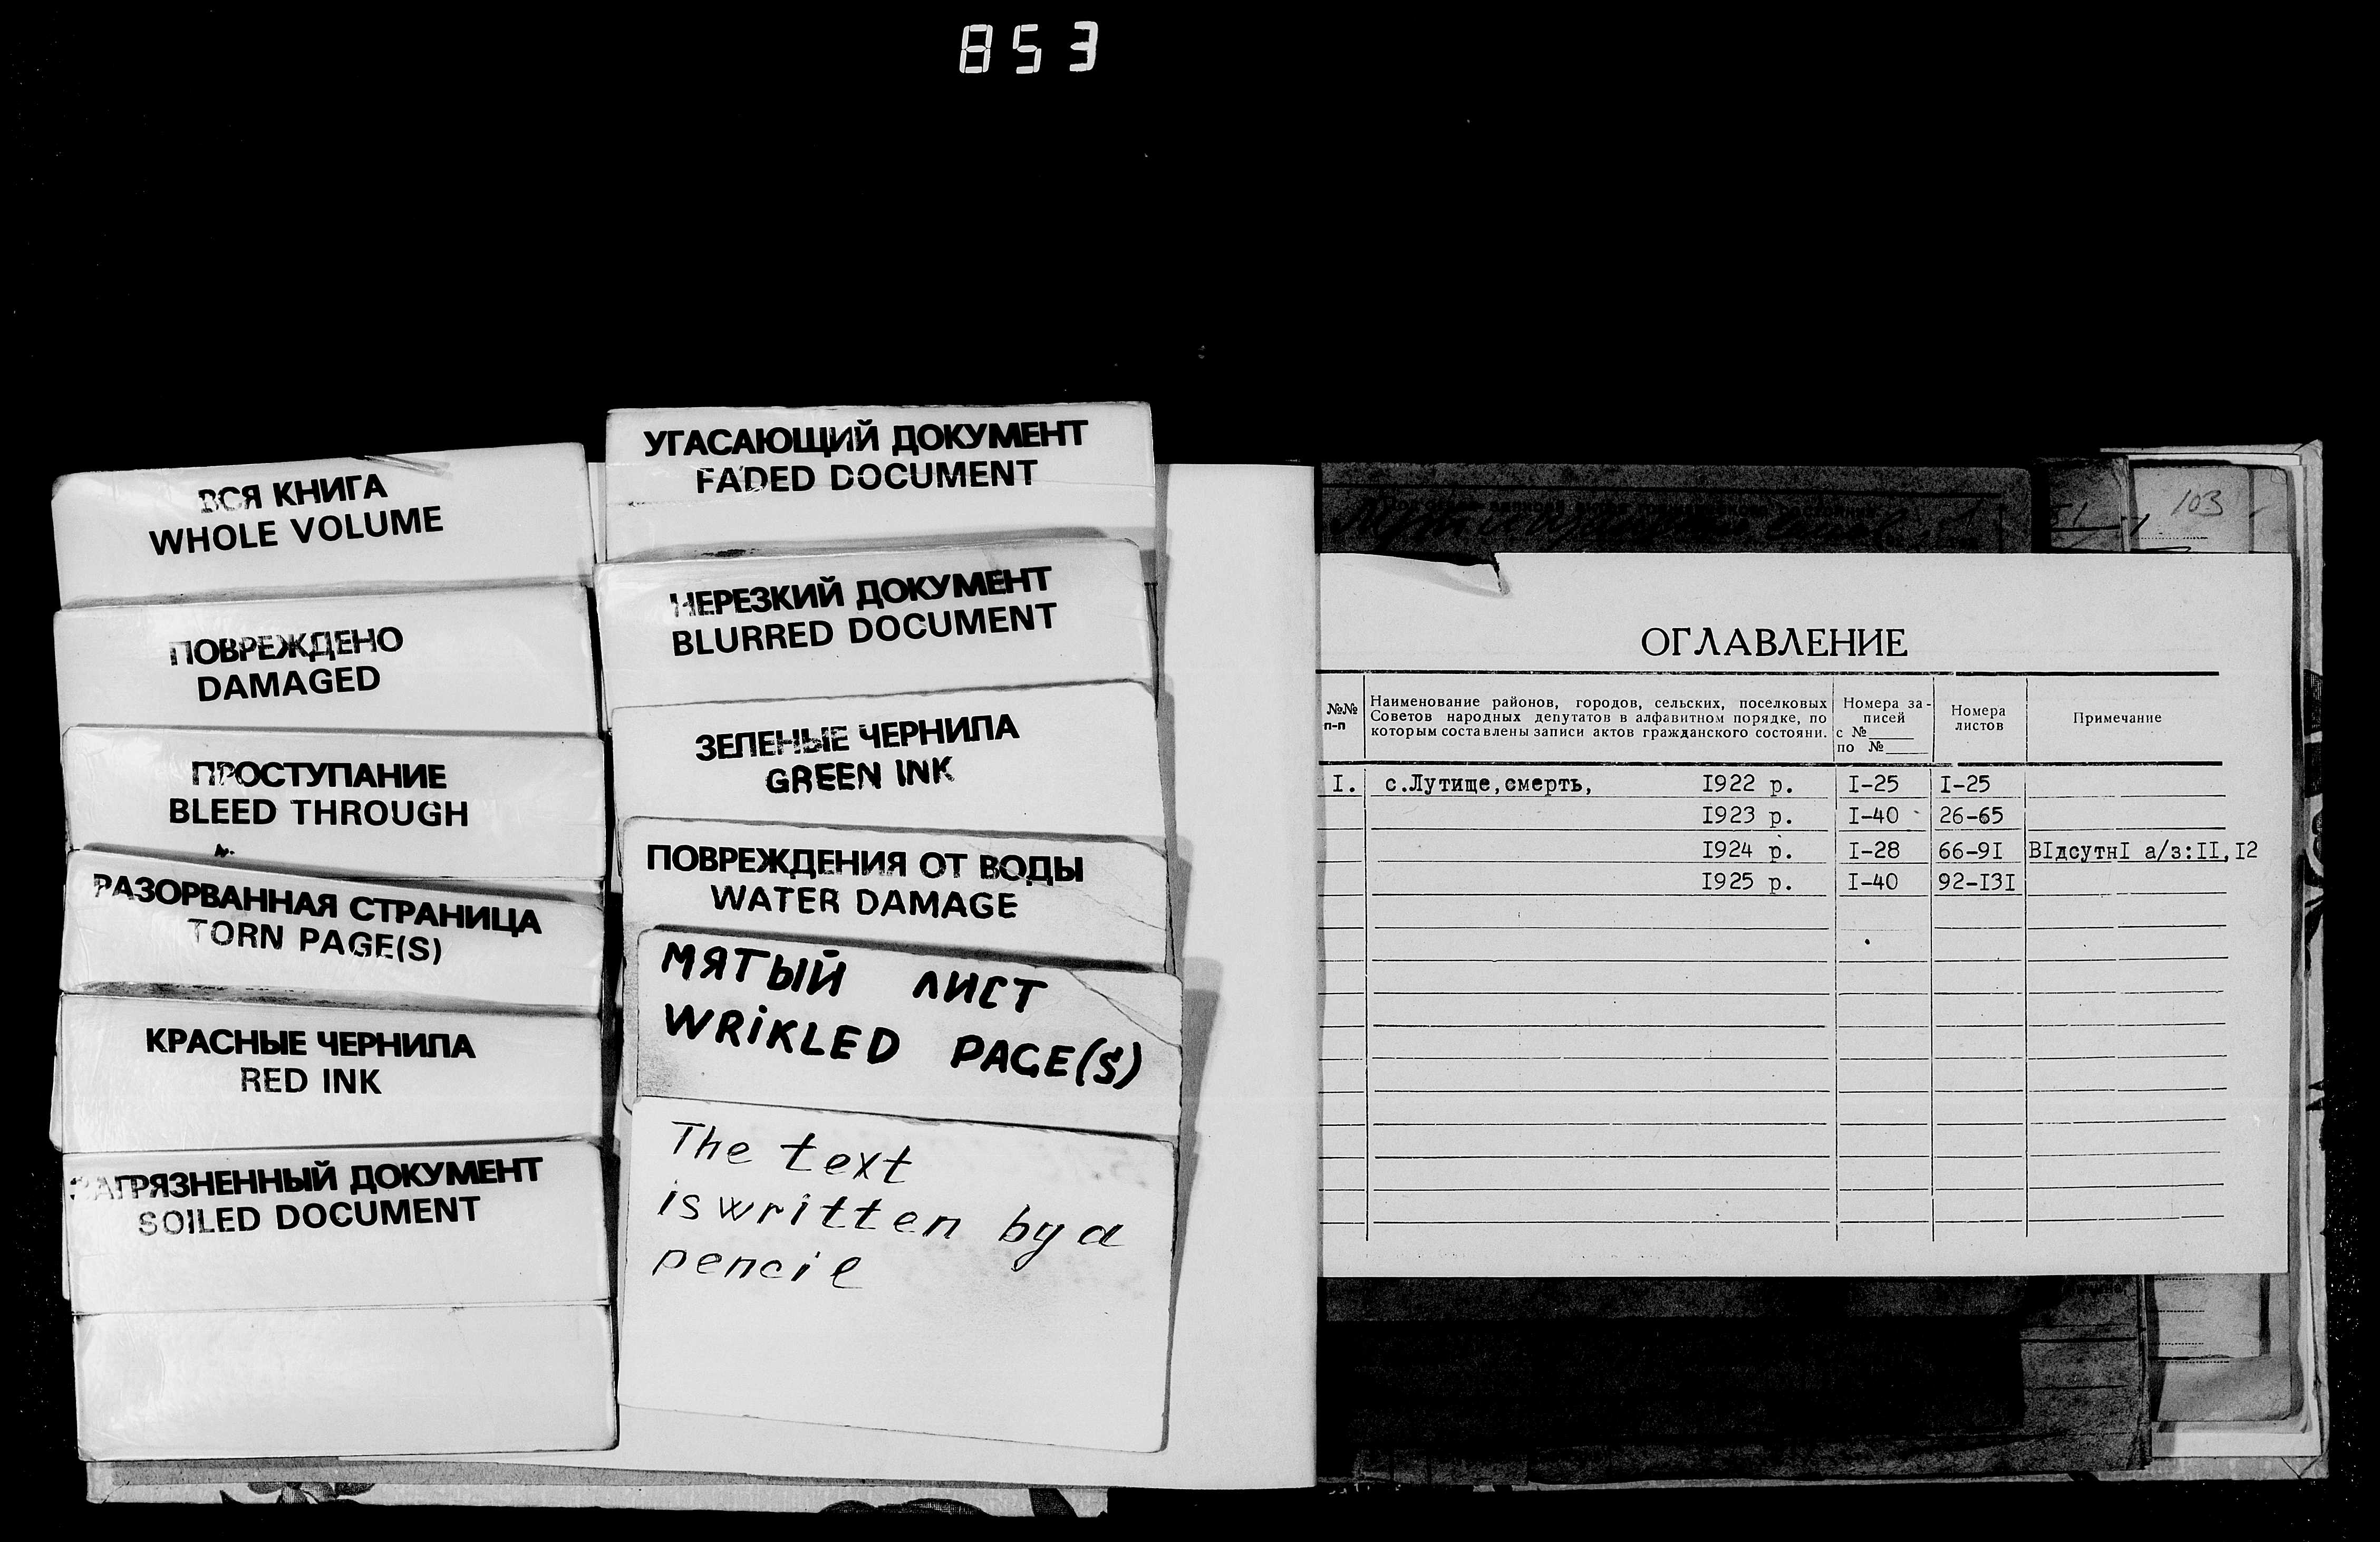 853
ВСЯ КНИГА
WHOLE VOLUME
ПОВРЕЖДЕНО
DAMAGED
ПРОСТУПАНИЕ
BLEED THROUGH
РАЗОРВАННАЯ СТРАНИЦА
TORN PAGE(S)
КРАСНЫЕ ЧЕРНИЛА
RED INK
ЗАГРЯЗНЕННЫЙ ДОКУМЕНТ
SOILED DOCUMENT
УГАСАЮЩИЙ ДОКУМЕНТ
FADED DOCUMENT
НЕРЕЗКИЙ ДОКУМЕНТ
BLURRED DOCUMENT
ЗЕЛЕНЫЕ ЧЕРНИЛА
GREEN INK
ПОВРЕЖДЕНИЯ ОТ ВОДЫ
WATER DAMAGE
МЯТЫЙ ЛИСТ
WRiKLED PAGE(S)
The text
is written by a
pencil
103
ОГЛАВЛЕНИЕ
№№ п-п
Наименование районов, городов, сельских, поселковых
Советов народных депутатов в алфавитном порядке, по
которым составлены записи актов гражданского состояни.
Номера за-
писей
с №____
по №____
Номера
листов
Примечание
I. с.Лутище,смерть, I922 р. I-25 I-25
I923 р. I-40 26-65
I924 р. I-28 66-9I ВIдсутнI а/з:II,I2
I925 р. I-40 92-I3I